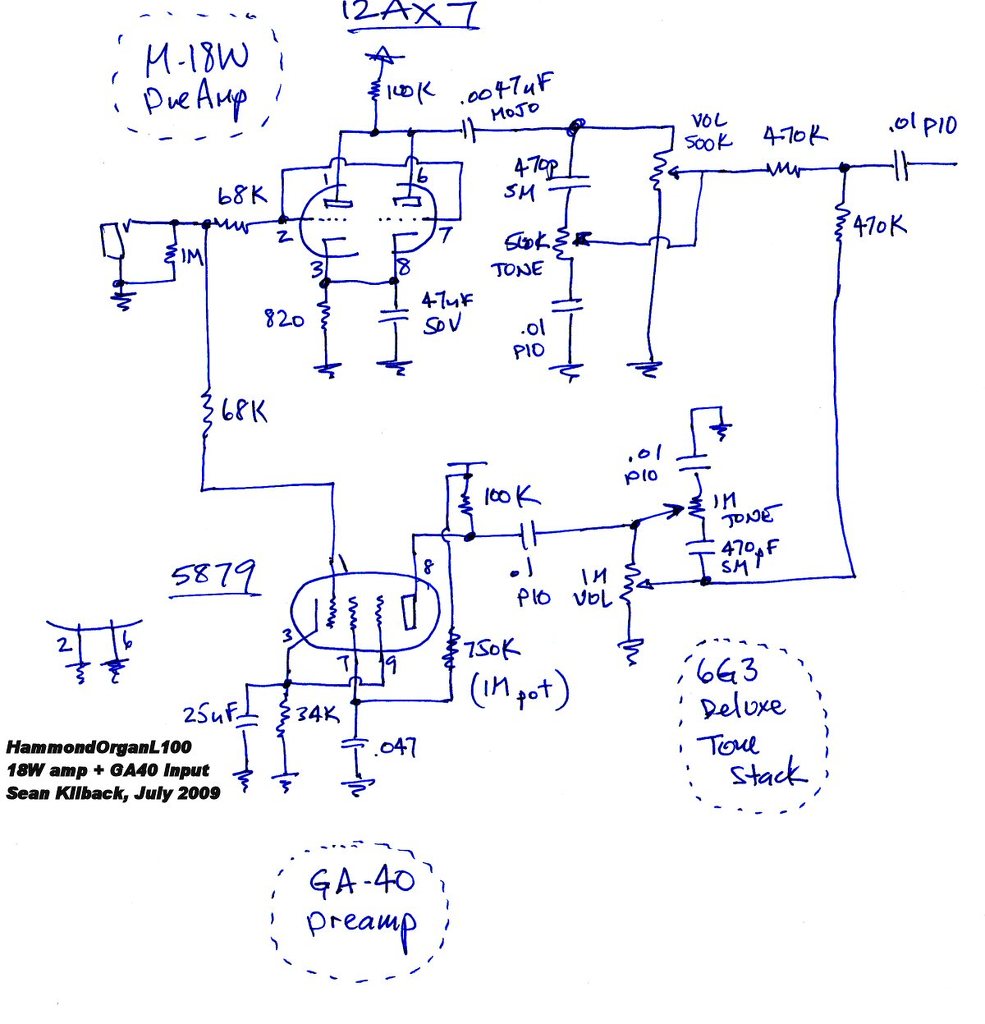 12AX7
M-18W
PreAmp
100K
.0047uF
MOJO
VOL
500K
470K
.01 PIO
470P
SM
1
6
68K
2
7
1M
470K
500K
TONE
3
8
47uF
50V
820
.01
PIO
68K
.01
PIO
100K
1M
TONE
470pF
SM
1
8
5879
.1
PIO
1M
VOL
2
6
3
7
9
750K
(1M pot)
6G3
Deluxe
Tone
Stack
25uF
34K
.047
HammondOrganL100
18W amp + GA40 Input
Sean Kilback, July 2009
GA-40
Preamp